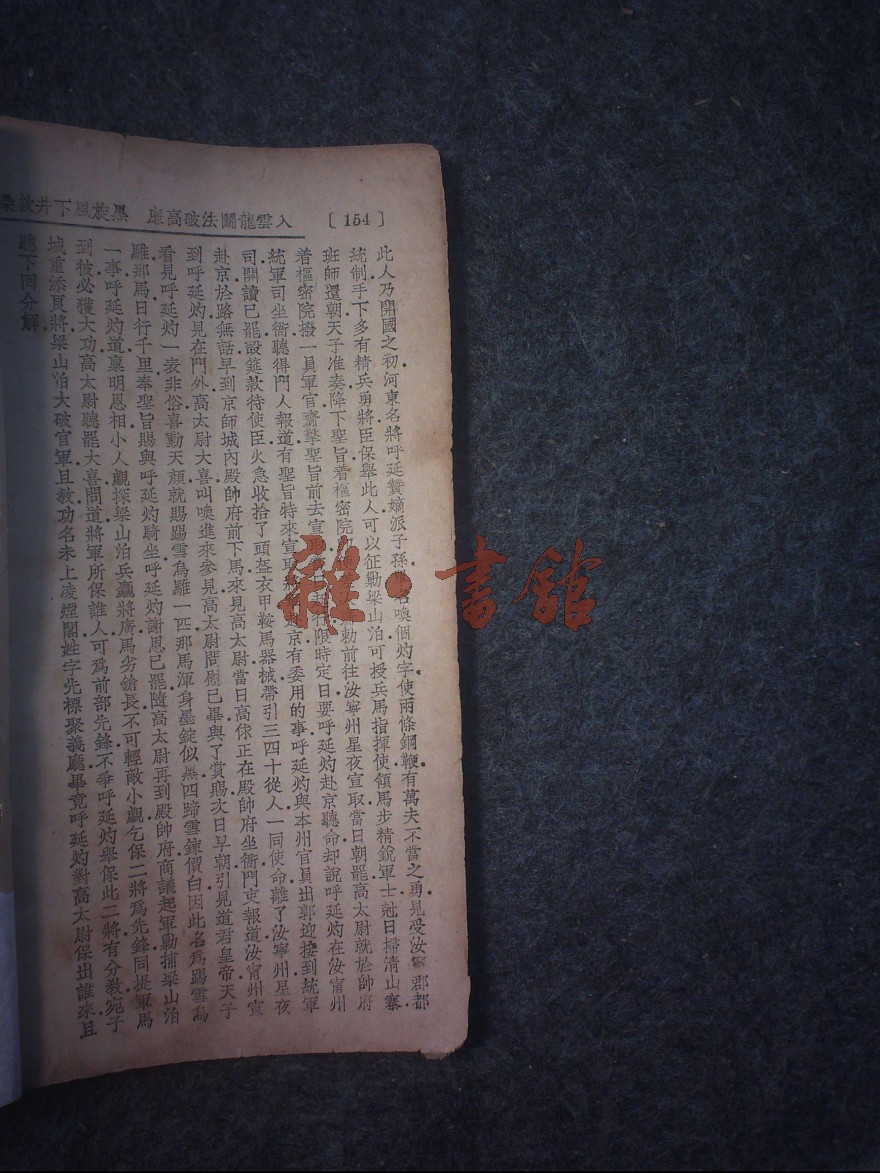 [154]
入雲龍鬭法破高廉 黑旋風下井救柴
此人乃開國之初河東名將呼延贊嫡派子孫 名喚個灼字使兩條鋼鞭有萬夫不當之勇見受汝寧郡都
統制手下多有精兵勇將臣保舉此人可以征勦梁山泊可授兵馬指揮使領馬步精銳軍士尅日掃清山寨
班師還朝天子准奏降下聖旨着樞密院 勅前往汝寧州星夜宣取當日朝罷高太尉就於帥府
着樞密院撥一員軍官齎擎聖旨前去宣取 限時定日要呼延灼赴京聽命却說呼延灼在汝甯州
統軍司坐衙聽得門人報道有聖旨特來宣取 京有委用的事呼延灼與本州官員出郭迎接到統軍
司開讀已罷設筵欵待使臣火急收拾了頭盔衣甲鞍馬器械帶引三四十從人一同使命離了汝寧州星夜
赴京於路無話早到京師城內殿帥府前下馬來見高太尉當日高俅正在殿帥府坐衙門吏報道汝甯州宣
到呼延灼見在門外高太尉大喜叫喚進來參見高太尉問慰已畢與了賞賜次日早朝引見道君皇帝天子
看見呼延灼一表非俗喜動天顏就賜踢雪烏騅一匹那馬渾身墨錠似黑四蹄雪鍊價白因此名爲踢雪烏
騅那馬日行千里奉聖旨賜與呼延灼騎坐呼延灼謝恩已罷隨高太尉再到殿帥府商議起軍勦捕梁山泊
一事呼延灼道稟明恩相小人覷探梁山泊兵麤將廣馬劣鎗長不可輕敵小覷乞保二將爲先鋒同提軍馬
到彼必獲大功高太尉聽罷大喜問道將軍所保誰人可爲前部先鋒不爭呼延灼舉保此二將有分教宛子
城重添良將梁山泊大破官軍且教功名未上凌煙閣姓字先標聚義廳畢竟呼延灼對高太尉保出誰來且
聽下回分解
雜·書館